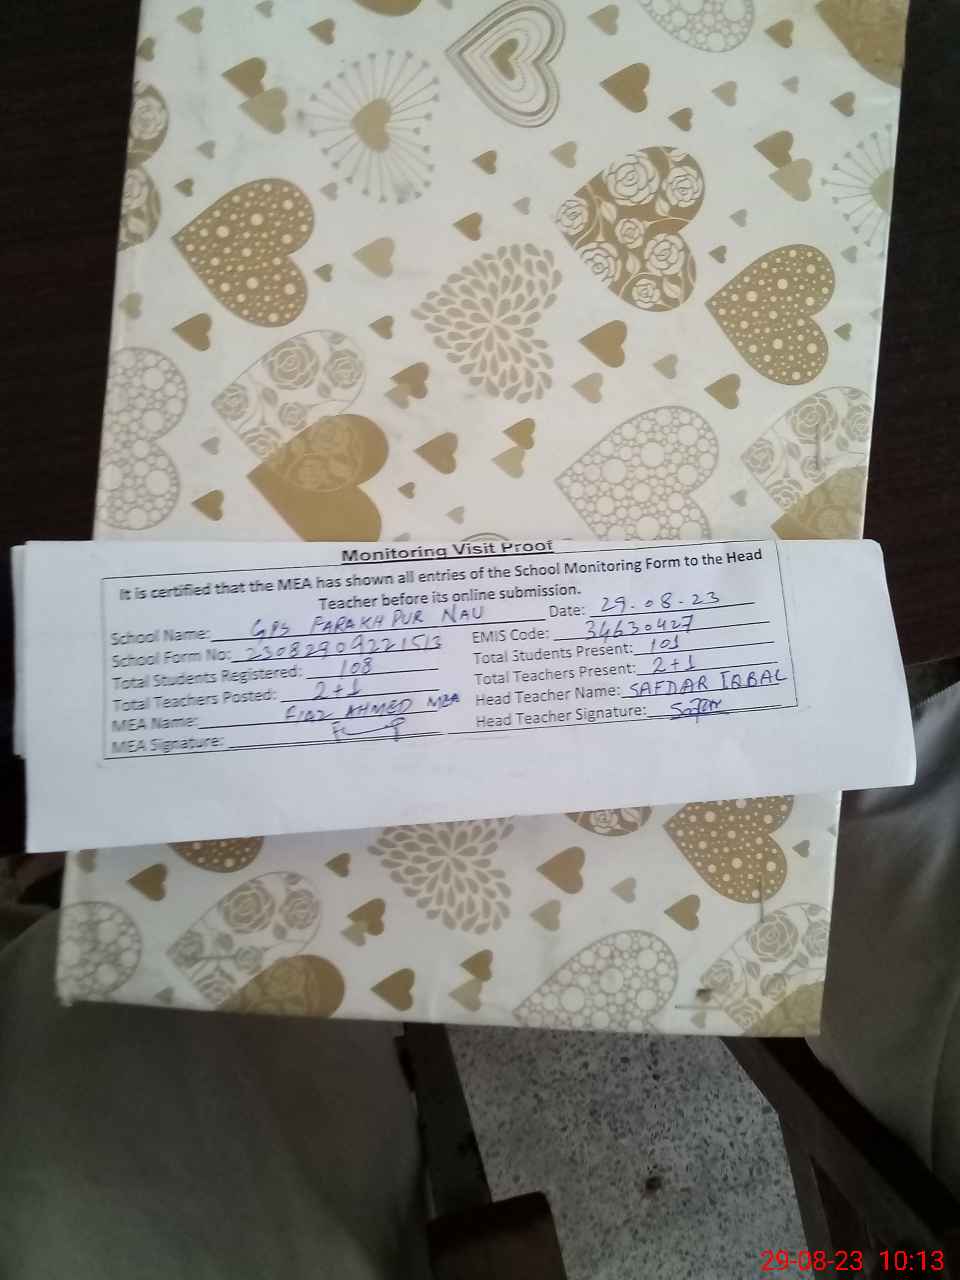 Monitoring Visit Proof
It is certified that the MEA has shown all entries of the School Monitoring Form to the Head
Teacher before its online submission.
School Name: GPS FARAKHPUR NAU Date: 29.08.23
School Form No: 23082909221513 EMIS Code: 34630427
Total Students Registered: 108 Total Students Present: 101
Total Teachers Posted: 2+1 Total Teachers Present: 2+1
MEA Name: FIAZ AHMED MEA Head Teacher Name: SAFDAR IQBAL
MEA Signature: Head Teacher Signature:
29-08-23 10:13